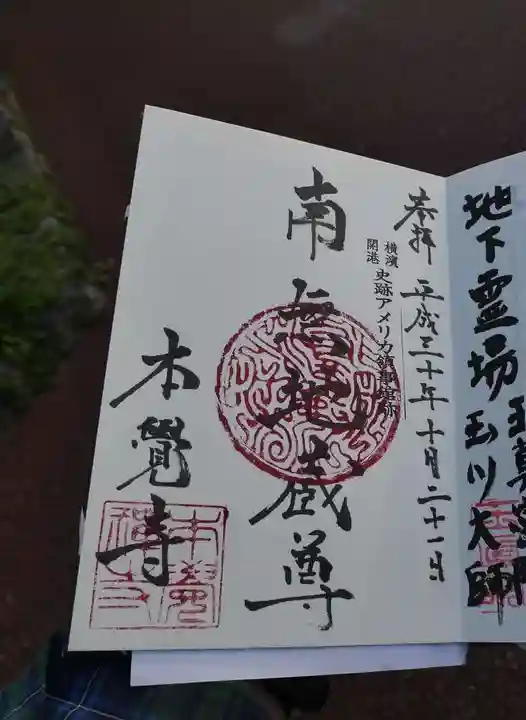 地下霊場
玉川大師
奉拝 平成三十年十月二十一日
横濱
開港
史跡アメリカ領事館跡
南無地蔵尊
本覺寺